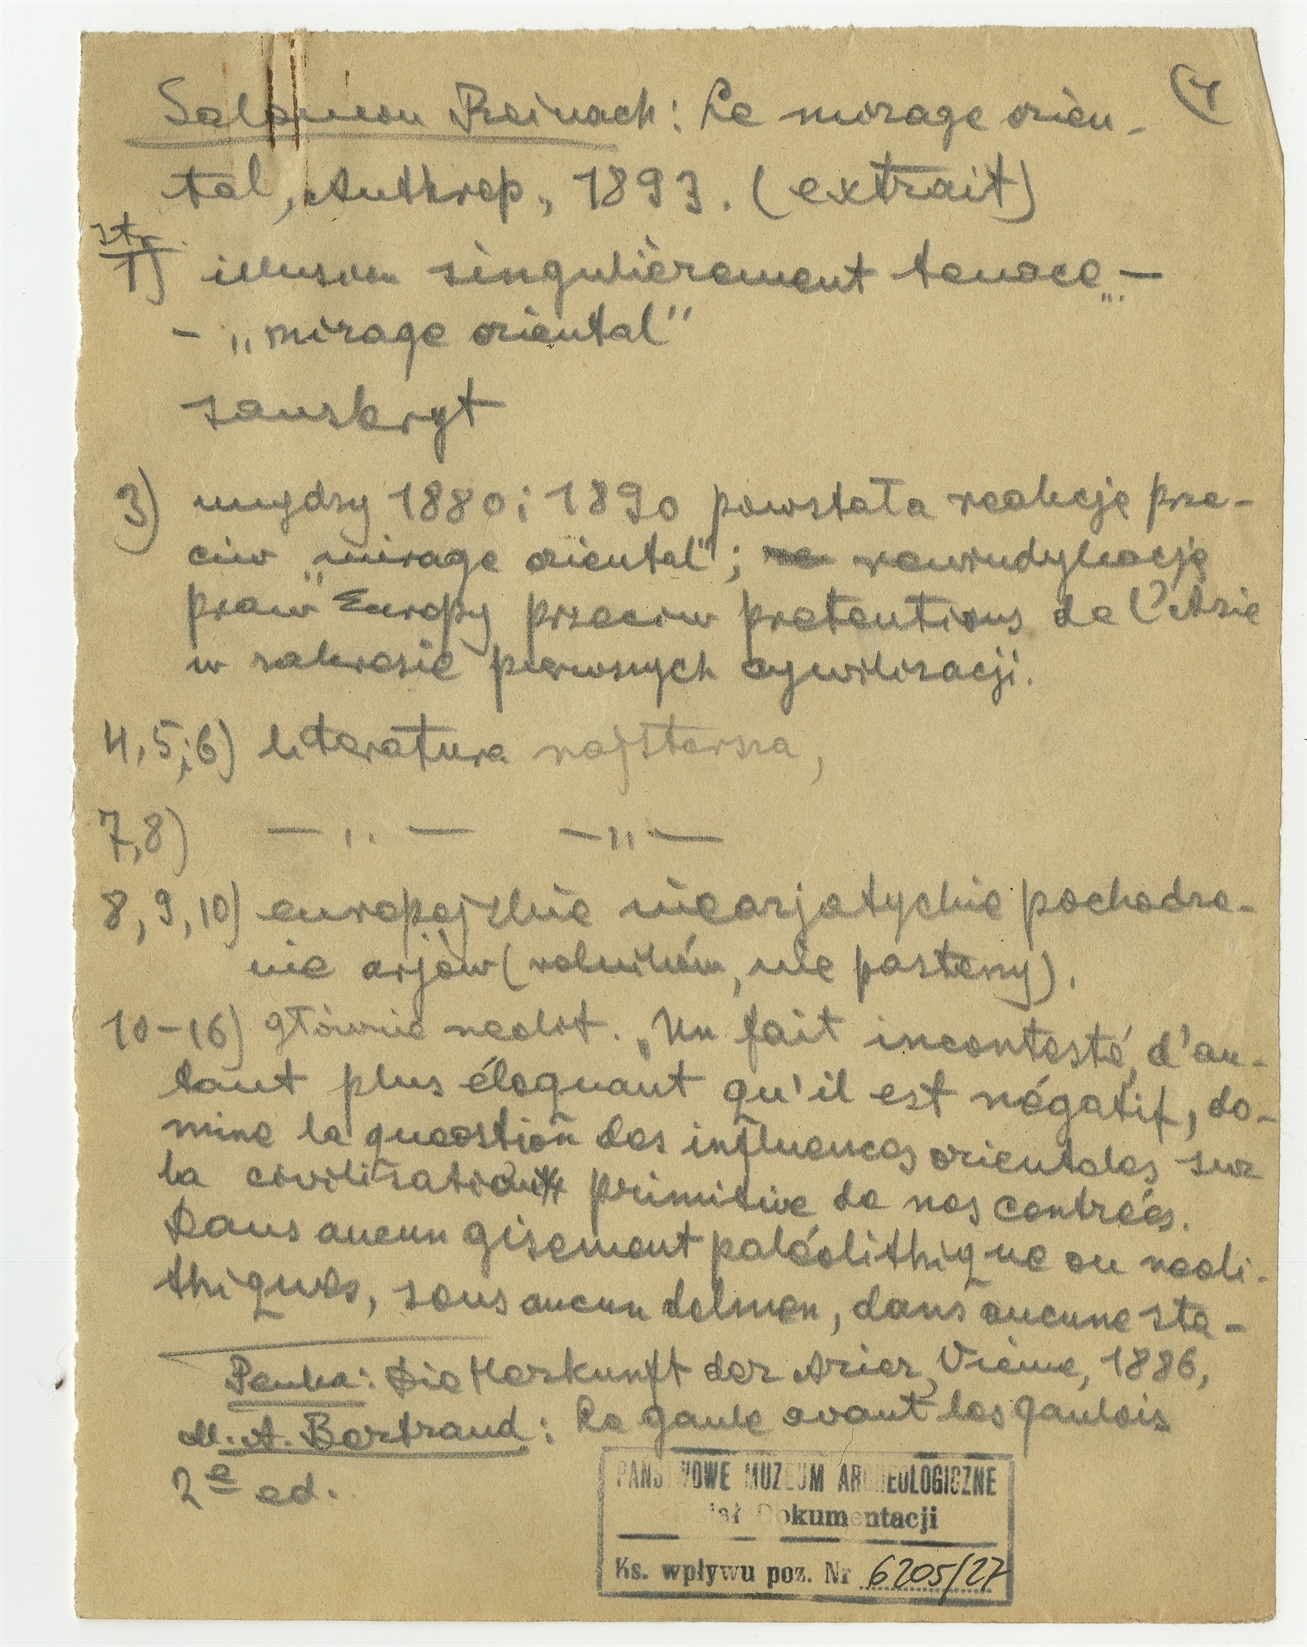 (4
Salomon Reinach: Le mirage orien-
tal, Anthrop., 1893. (extrait)
str.
1) illusion singulièrement tenace... –
– „mirage oriental”
sanskryt
3) między 1880 i 1890 powstała reakcję prze-
ciw „mirage oriental”; rewindykację
praw Europy przeciw pretentions de l'Asie
w zakresie pierwszych cywilizacji.
4, 5, i 6) literatura najstarsza,
7, 8) — ,, — — ,, —
8, 9, 10) europejskie nieazjatyckie pochodze-
nie arjów (rolników, nie pasterzy).
10–16) głównie neolit. „Un fait incontesté, d'au-
tant plus éloquant qu'il est négatif, do-
mine la question des influences orientales sur
la civilisation primitive de nos contrées.
Dans aucun gisement paléolithique ou neoli-
thiques, sous aucun dolmen, dans aucune sta-
Penka: Die Herkunft der Arier, Viènne, 1886,
M. A. Bertrand: La gaule avant les gaulois
2e ed.
PAŃSTWOWE MUZEUM ARCHEOLOGICZNE
Dział Dokumentacji
Ks. wpływu poz. Nr 6205/27